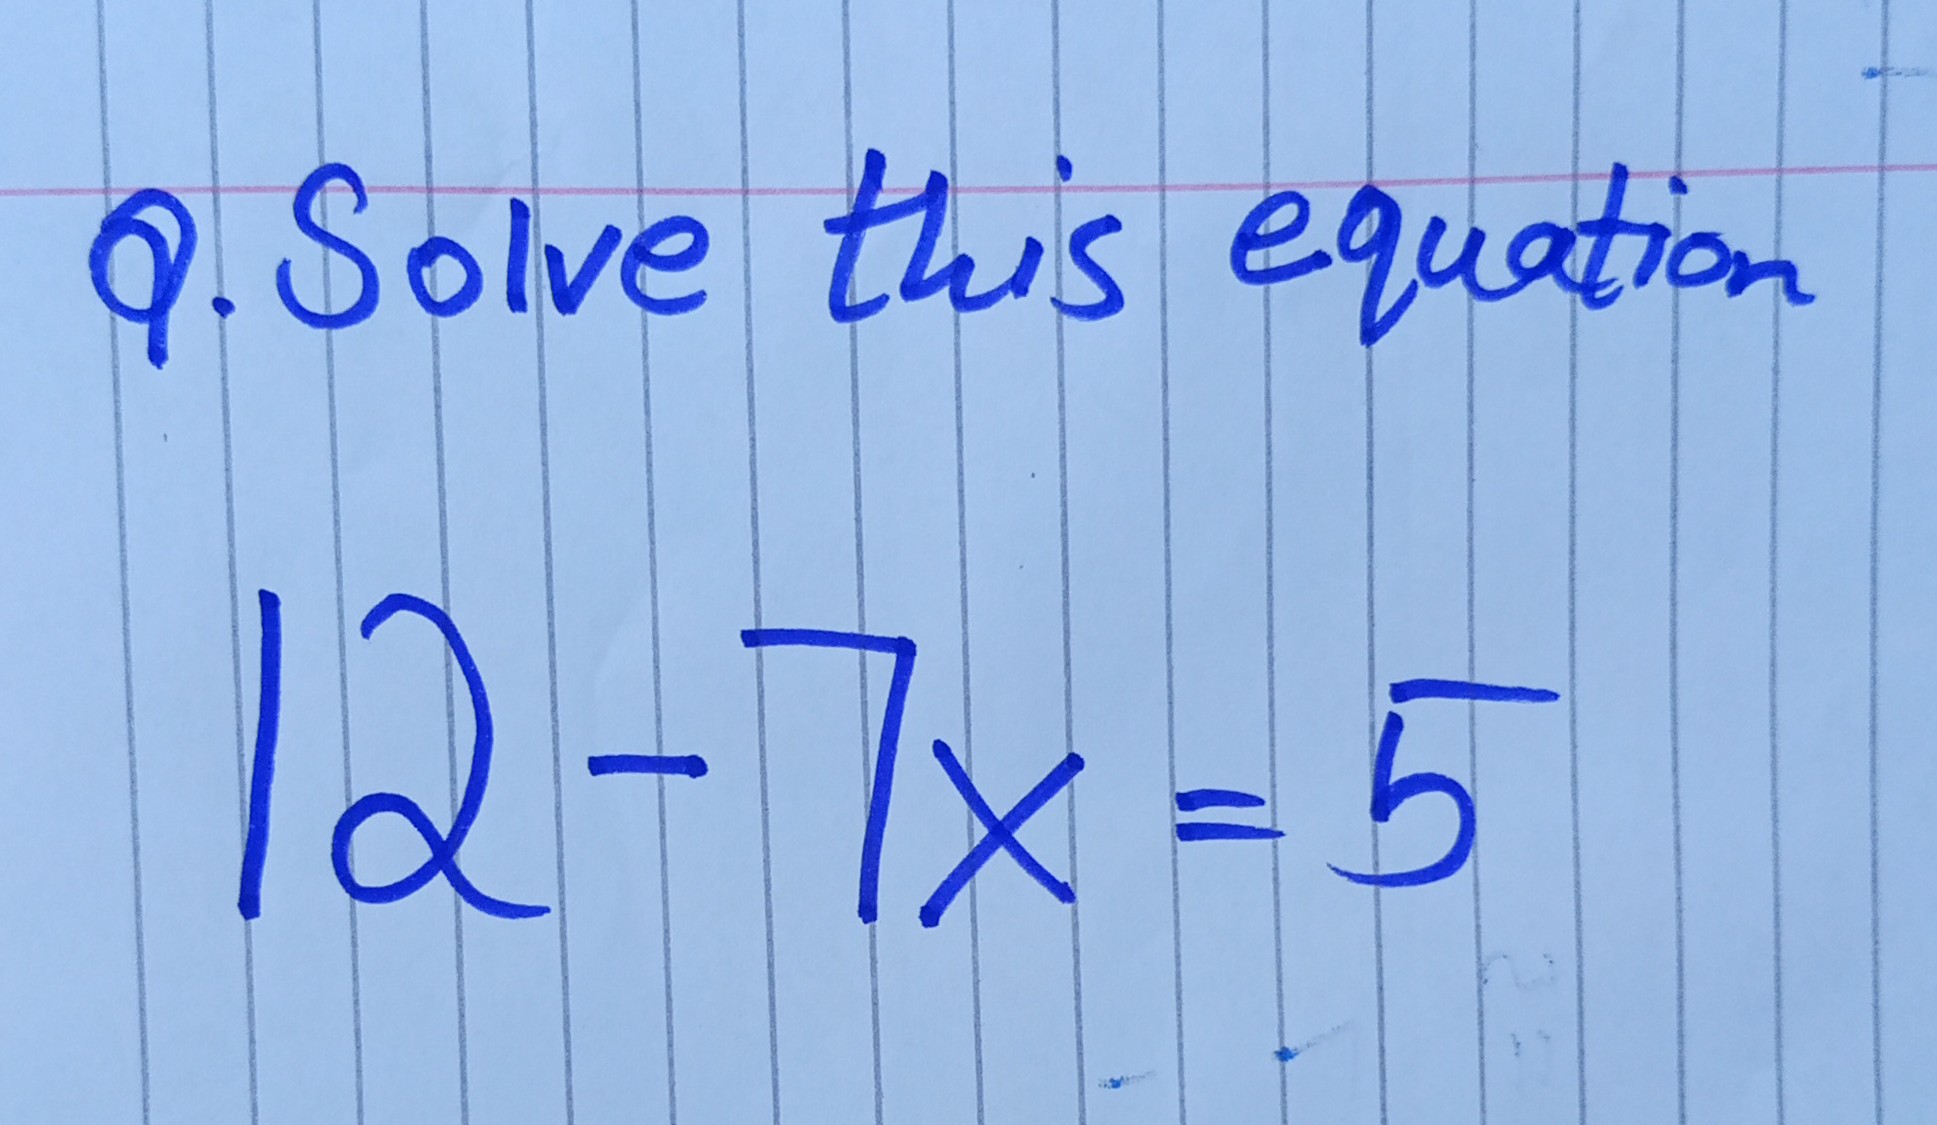 Q. Solve this equation
12 - 7x = 5